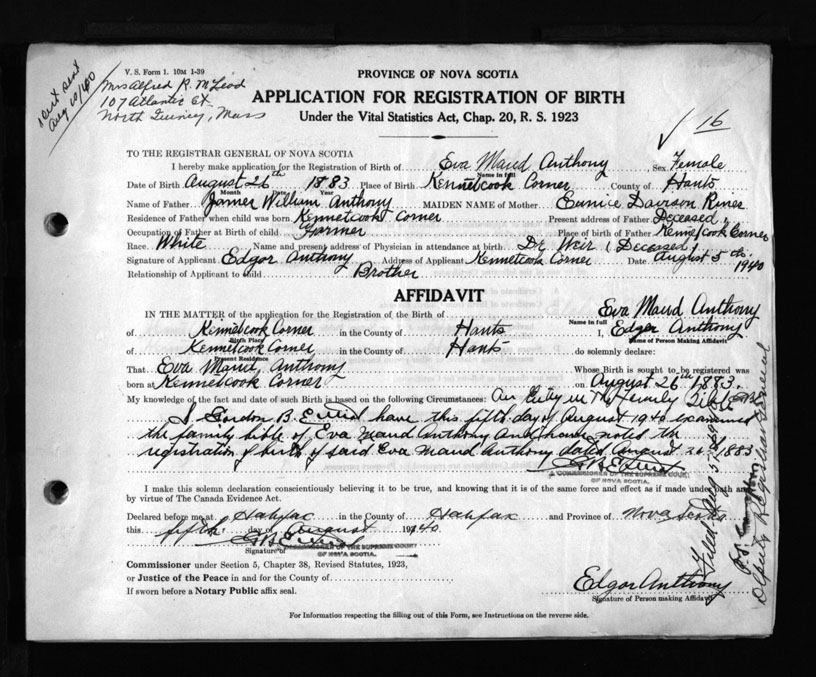 Cert sent
Aug 10/40
V. S. Form 1. 10M 1-39
Mrs Alfred R. McLeod
107 Atlantic St.
North Quincy, Mass
PROVINCE OF NOVA SCOTIA
APPLICATION FOR REGISTRATION OF BIRTH
Under the Vital Statistics Act, Chap. 20, R. S. 1923
16
TO THE REGISTRAR GENERAL OF NOVA SCOTIA
I hereby make application for the Registration of Birth of Eva Maud Anthony Sex Female
Name in full
Date of Birth August 26th 1883 Place of Birth Kennetcook Corner County of Hants
Month Year
Name of Father James William Anthony MAIDEN NAME of Mother Eunice Davison
Residence of Father when child was born Kennetcook Corner Present address of Father Deceased
Occupation of Father at Birth of child Farmer Place of birth of Father Kennetcook Corner
Race White Name and present address of Physician in attendance at birth Dr Weir (Deceased)
Signature of Applicant Edgar Anthony Address of Applicant Kennetcook Corner Date August 5th 1940
Relationship of Applicant to child Brother
AFFIDAVIT
IN THE MATTER of the application for the Registration of the Birth of Eva Maud Anthony
Name in full
of Kennetcook Corner in the County of Hants I, Edgar Anthony
Birth Place Name of Person Making Affidavit
of Kennetcook Corner in the County of Hants do solemnly declare:
Present Residence
That Eva Maud Anthony Whose Birth is sought to be registered was
born at Kennetcook Corner on August 26th 1883.
My knowledge of the fact and date of such Birth is based on the following Circumstances: An Entry in the Family Bible
I Gordon B. have this fifth day of August 1940 examined
the family bible of Eva Maud Anthony and have noted the
registration of birth of said Eva Maud Anthony dated August 26th 1883
A COMMISSIONER OF THE SUPREME COURT
OF NOVA SCOTIA.
I make this solemn declaration conscientiously believing it to be true, and knowing that it is of the same force and effect as if made under oath and
by virtue of The Canada Evidence Act.
Declared before me at Halifax in the County of Halifax and Province of Nova Scotia
this fifth day of August 1940
Signature of
COMMISSIONER OF THE SUPREME COURT
OF NOVA SCOTIA.
Commissioner under Section 5, Chapter 38, Revised Statutes, 1923,
or Justice of the Peace in and for the County of
If sworn before a Notary Public affix seal.
Edgar Anthony
Signature of Person making Affidavit
For Information respecting the filling out of this Form, see Instructions on the reverse side.
Filed Aug 5
Deputy Registrar General